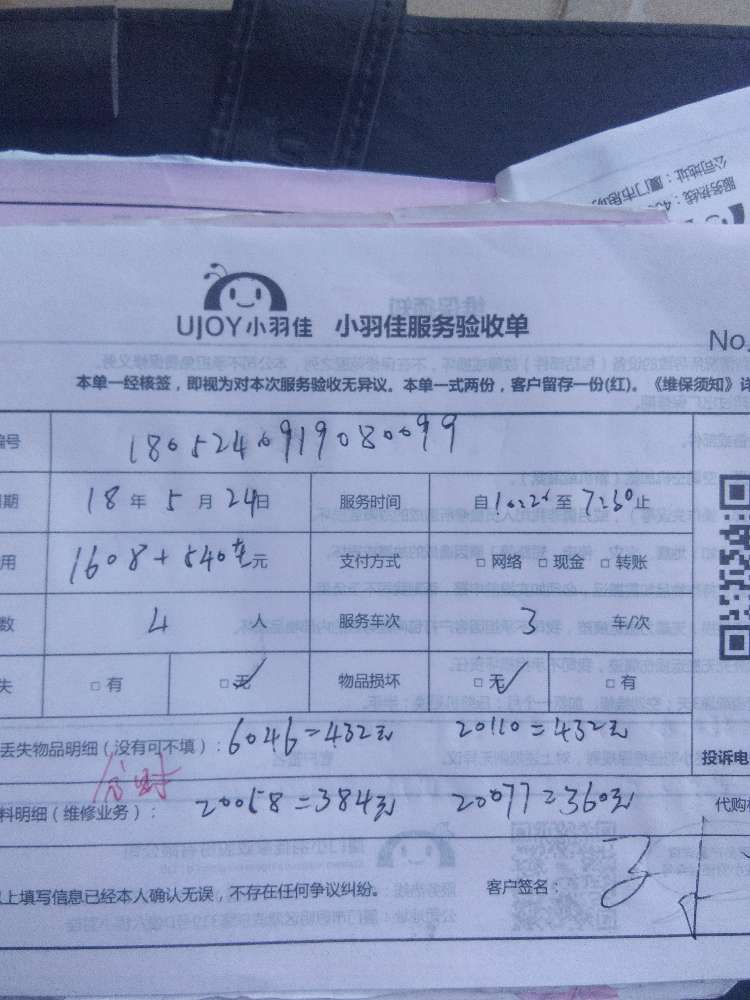 服务热线：40
公司地址：厦门市思明
UJOY小羽佳 小羽佳服务验收单
No.
本单一经核签，即视为对本次服务验收无异议。本单一式两份，客户留存一份(红)。《维保须知》详
编号 1805240919080099
期 18年5月24日 服务时间 自 至7:30止
用 1608+540 元 支付方式 □网络 □现金 □转账
数 4 人 服务车次 3 车/次
失 □有 □无 物品损坏 □无 □有
丢失物品明细（没有可不填）：6046=432元 20110=432元
投诉电
料明细（维修业务）：20058=384元 20077=360元
代购
上填写信息已经本人确认无误，不存在任何争议纠纷。 客户签名：